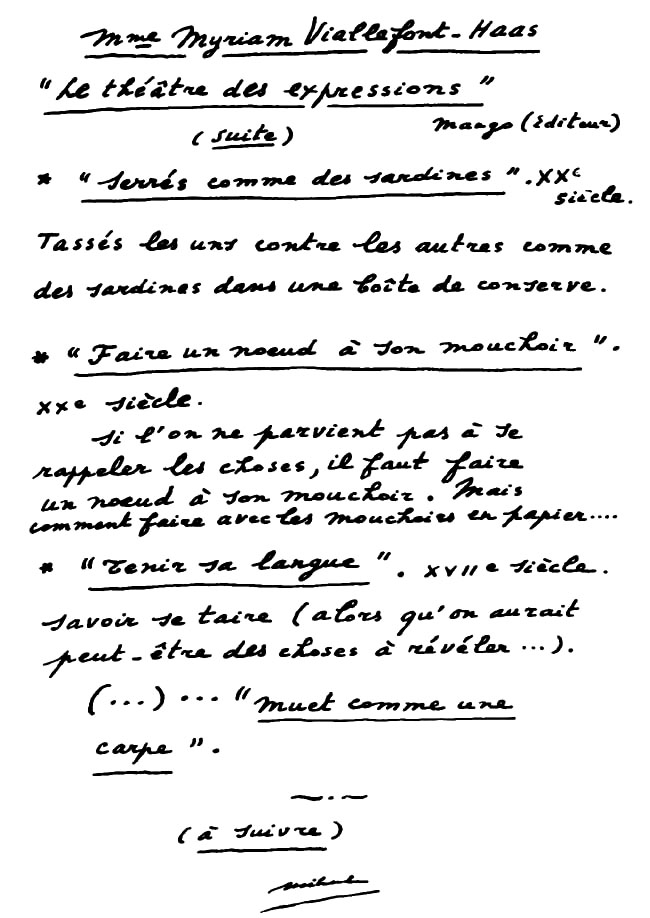 Mme Myriam Viallefont-Haas
"Le théâtre des expressions"
(suite) Mango (Éditeur)
* "Serrés comme des sardines". XXe
siècle.
Tassés les uns contre les autres comme
des sardines dans une boîte de conserve.
* "Faire un noeud à son mouchoir".
XXe siècle.
Si l'on ne parvient pas à se
rappeler les choses, il faut faire
un noeud à son mouchoir. Mais
comment faire avec les mouchoirs en papier....
* "Tenir sa langue". XVIIe siècle.
Savoir se taire (alors qu'on aurait
peut-être des choses à révéler...).
(...) ... "muet comme une
carpe".
(à suivre)